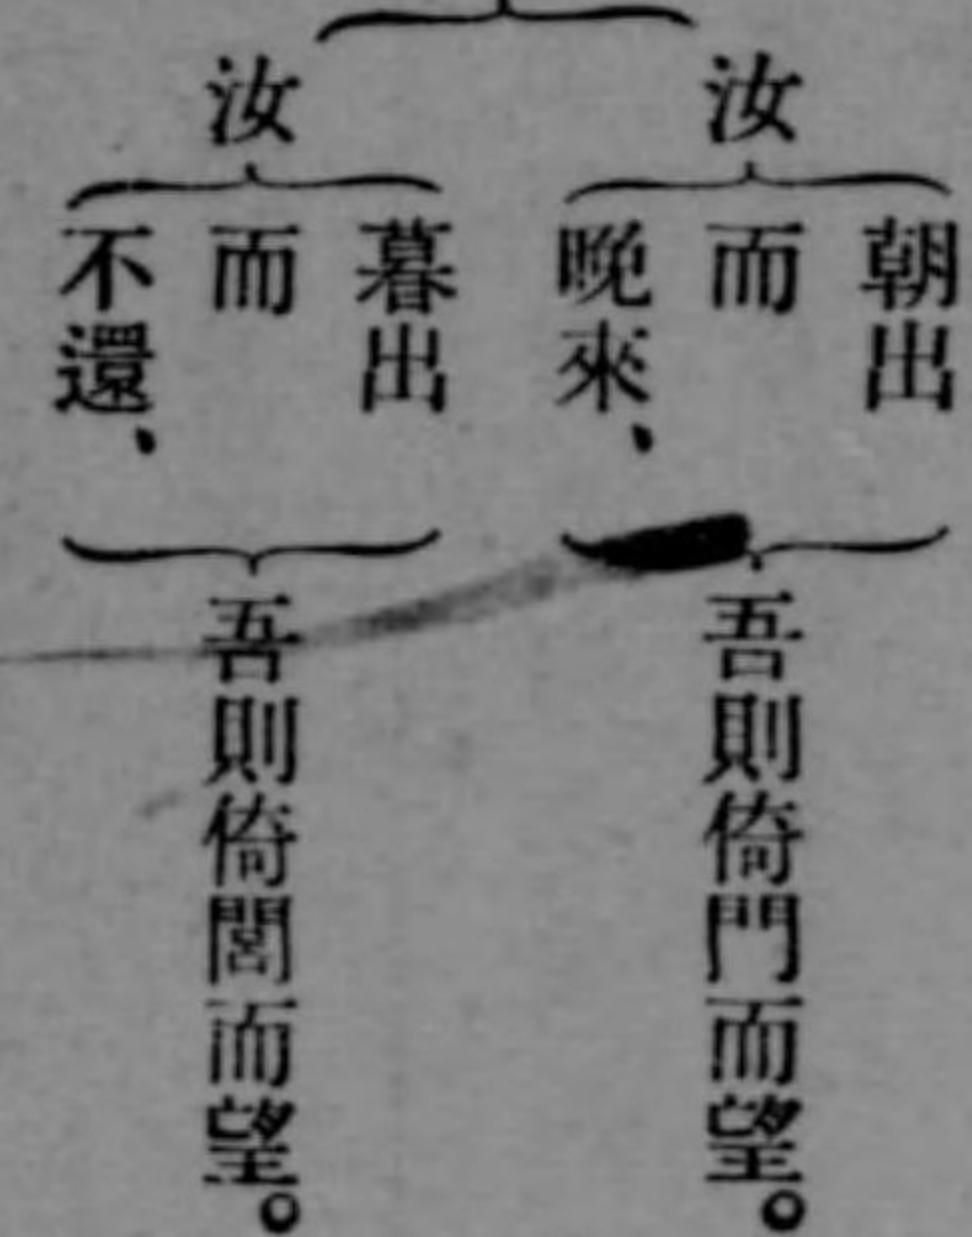 汝
朝出
而
晚來、
吾則倚門而望。
汝
暮出
而
不還、
吾則倚閭而望。